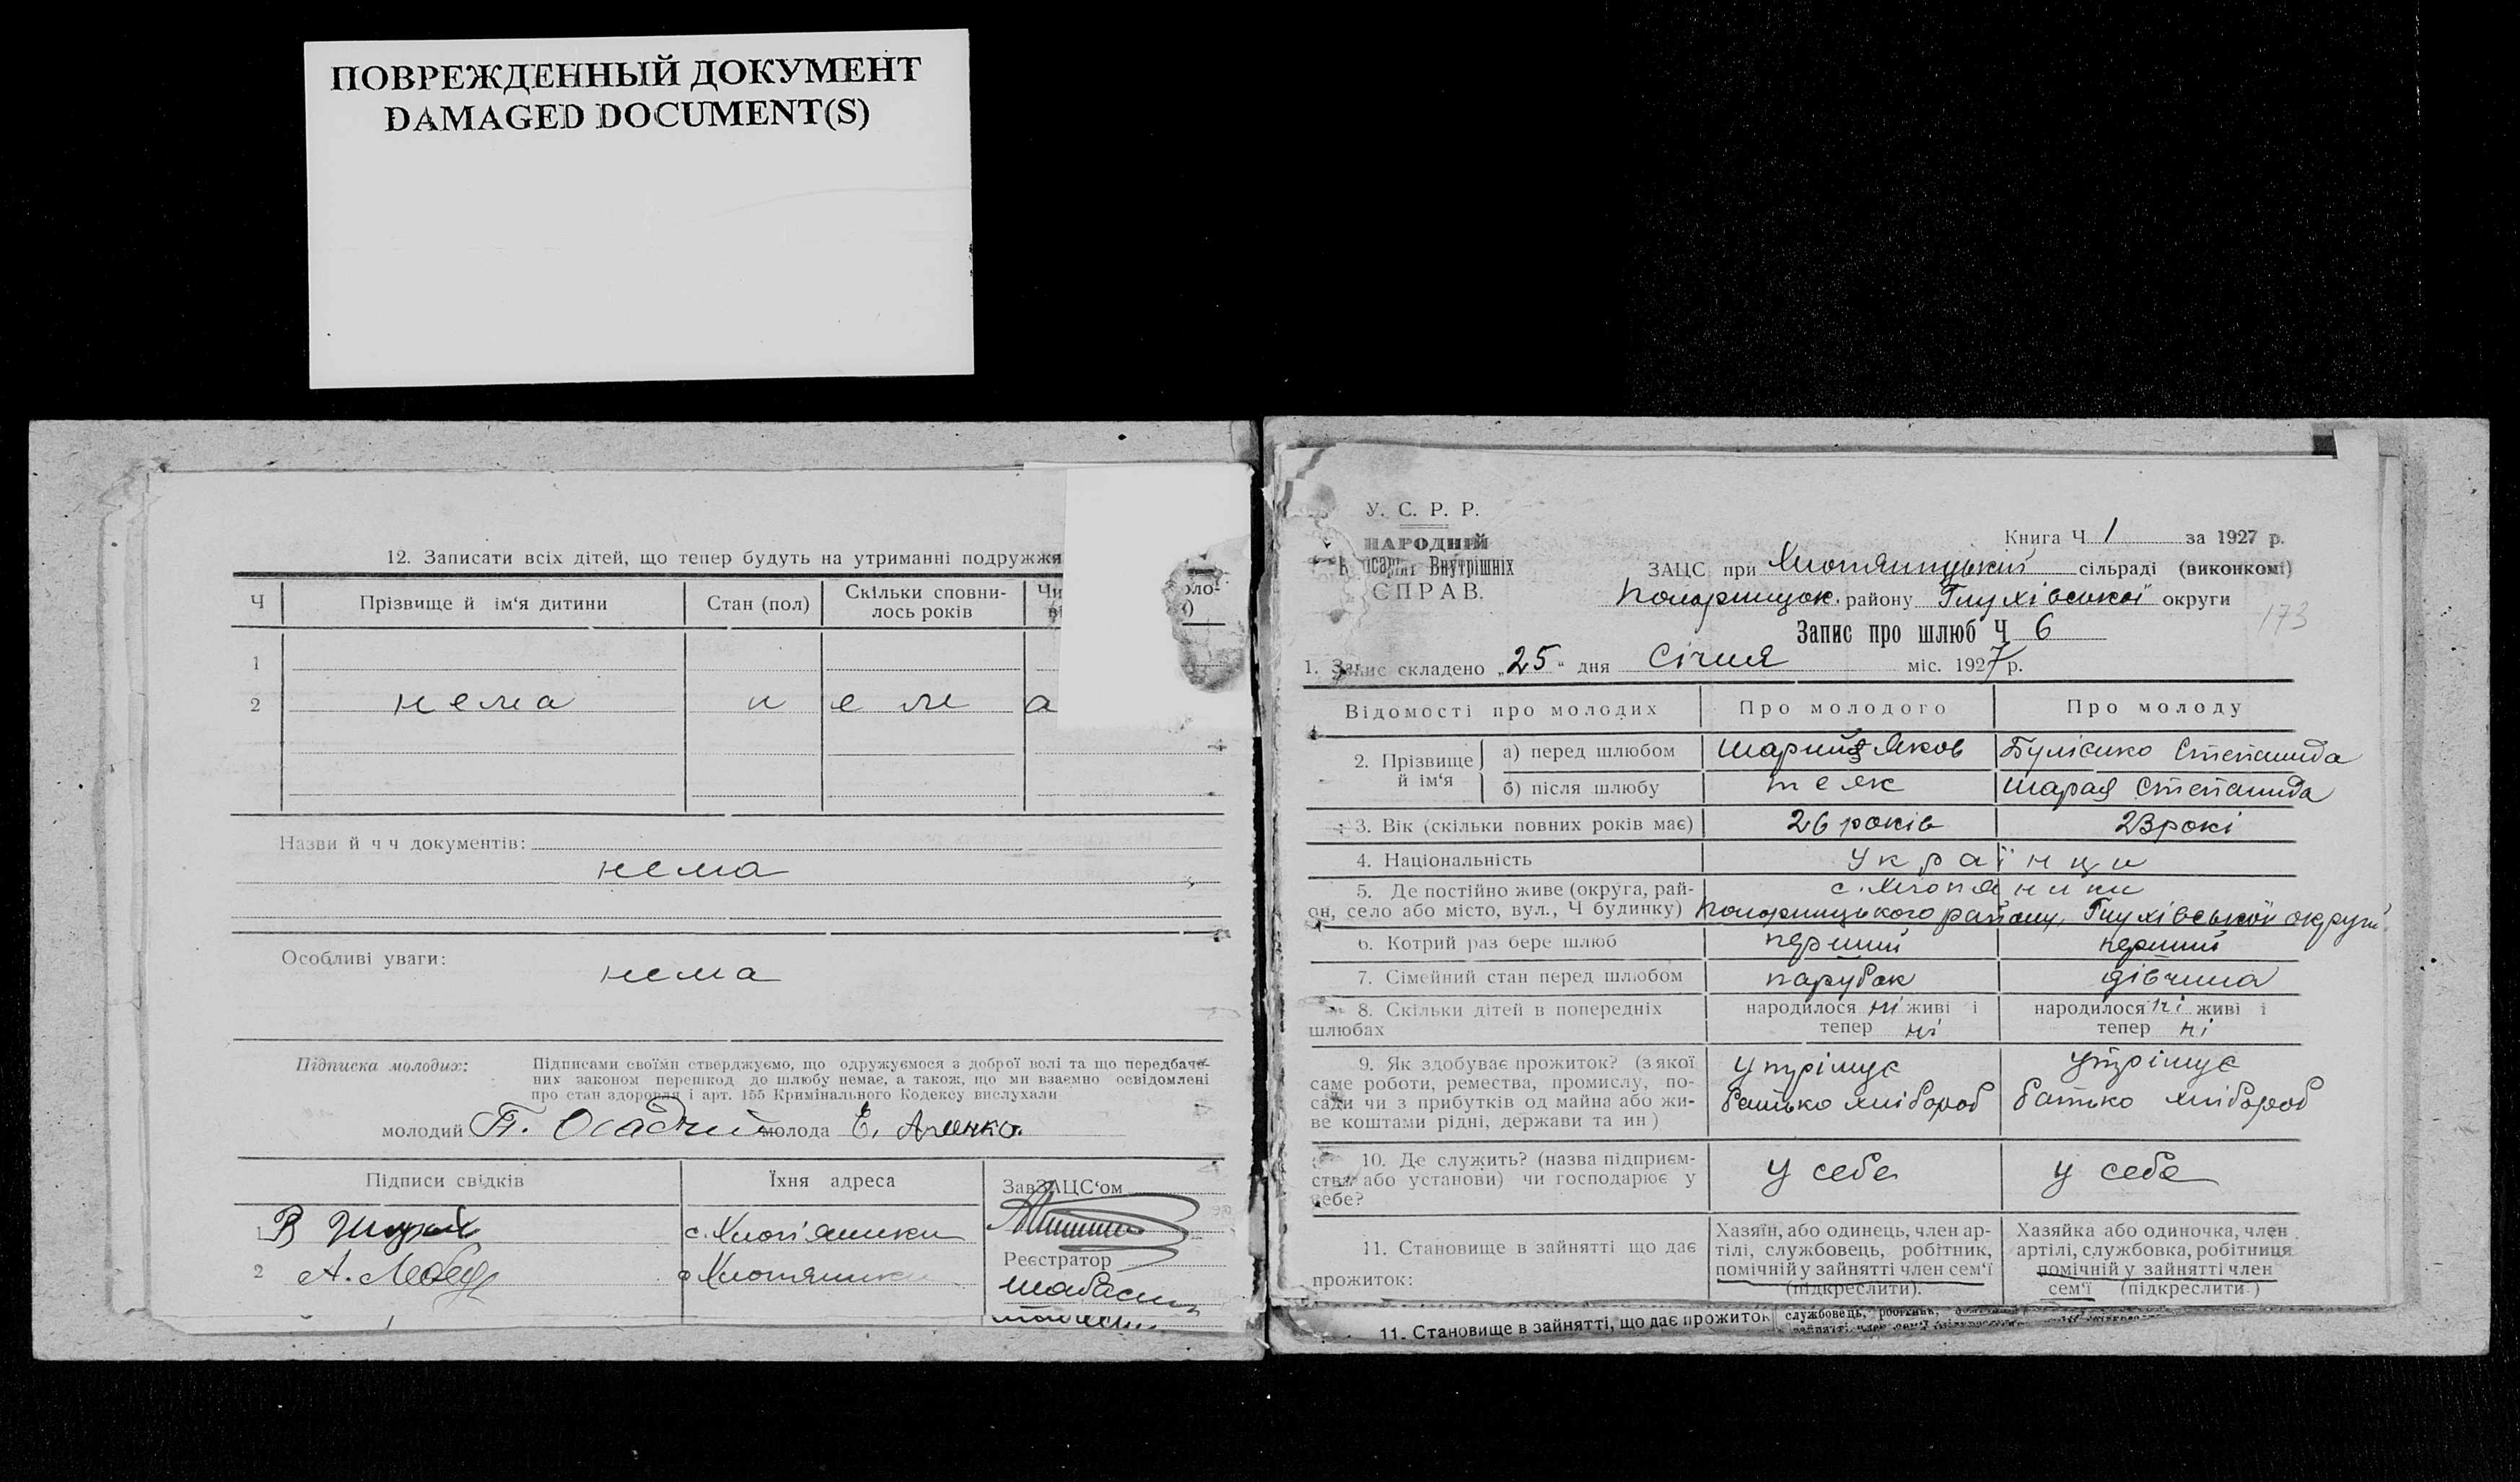 ПОВРЕЖДЕННЫЙ ДОКУМЕНТ
DAMAGED DOCUMENT(S)
12. Записати всіх дітей, що тепер будуть на утриманні подружжя
Ч Прізвище й ім‘я дитини Стан (пол) Скільки сповни-
лось років
1
2 нема н е м а
Назви й ч ч документів:
нема
Особливі уваги:
нема
Підписка молодих: Підписами своїми стверджуємо, що одружуємося з доброї волі та що передбаче-
них законом перешкод до шлюбу немає, а також, що ми взаємно освідомлені
про стан здоровля і арт. 155 Кримінального Кодексу вислухали
молодий П. Осадчий молода Е.
Підписи свідків Їхня адреса ЗавЗАЦС‘ом
1 В с. Хлоп'яники
Реєстратор
2 А. Лебедь с Хлопяники
У. С. Р. Р.
НАРОДНІЙ
Внутрішніх
СПРАВ.
Книга Ч 1 за 1927 р.
ЗАЦС при Хлопяницький сільраді (виконкомі)
Понорницьк. району Глухівської округи
173
Запис про шлюб Ч 6
1. Запис складено „25“ дня Січня міс. 1927 р.
Відомості про молодих Про молодого Про молоду
2. Прізвище й ім‘я а) перед шлюбом Шарий Яков Булієнко Степанида
б) після шлюбу теж Шарая Степанида
3. Вік (скільки повних років має) 26 років 23 рокі
4. Національність Українци
5. Де постійно живе (округа, рай- с. Хлопяники
он, село або місто, вул., Ч будинку) Понорницького району, Глухівської округи
6. Котрий раз бере шлюб перший перший
7. Сімейний стан перед шлюбом парубок дівчина
8. Скільки дітей в попередніх шлюбах народилося ні живі і тепер ні народилося ні живі і тепер ні
9. Як здобуває прожиток? (з якої
саме роботи, ремества, промислу, по-
сади чи з прибутків од майна або жи-
ве коштами рідні, держави та ин) утрімує батько хлібороб утрімує батько хлібороб
10. Де служить? (назва підприєм-
ства або установи) чи господарює у
себе? у себе у себе
11. Становище в зайнятті що дає
прожиток: Хазяїн, або одинець, член ар-
тілі, службовець, робітник,
помічній у зайнятті член сем‘ї
(підкреслити). Хазяйка або одиночка, член
артілі, службовка, робітниця
помічній у зайнятті член
сем‘ї (підкреслити)
11. Становище в зайнятті, що дає прожиток службовець, робітник,